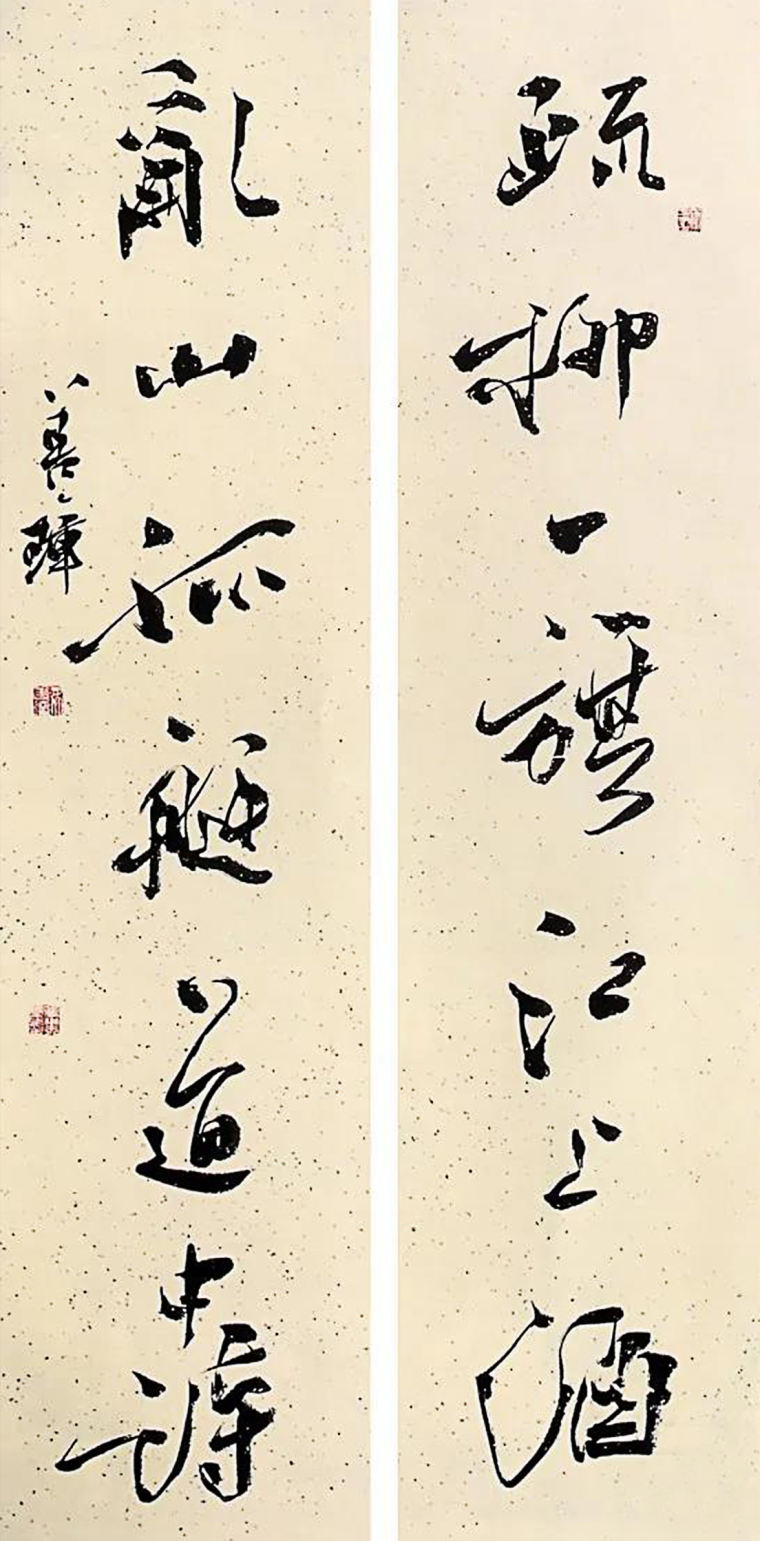 疏柳一旗江上酒
亂山孤艇道中詩
善璋